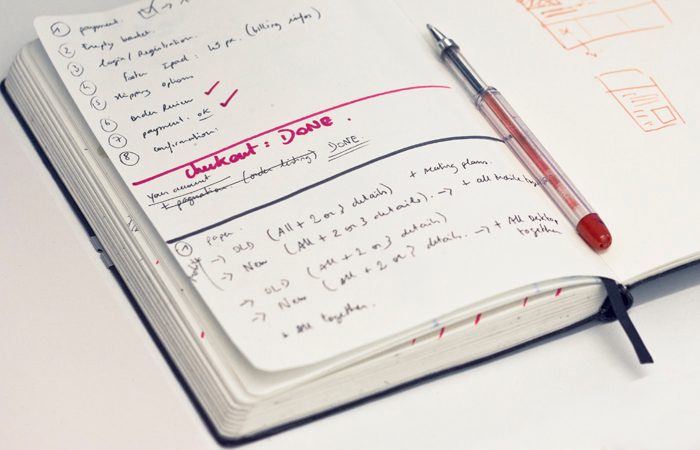 1 payment.
2 Empty basket.
3 Login / Registration.
4 footer Ipad: (billing infos)
5 shipping options
6 Order Review
7 payment: OK
8 confirmation.
checkout: DONE.
your account
+ pagination (order listing) DONE.
1 paper. + meeting plans.
→ OLD (All + 2 or 3 details)
→ New (All + 2 or 3 details). → + all together
→ OLD (All + 2 or 3 details)
→ New (All + 2 or 3 details. → + All Desktop together
+ all together.